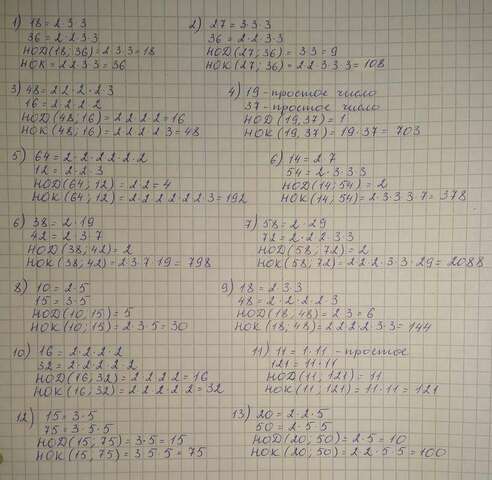 1) 18 = 2·3·3
36 = 2·2 3 3
НОД(18; 36) = 2 3 3 = 18
НОК = 2 2 3 3 = 36
2) 27 = 3·3·3
36 = 2·2·3·3
НОД(27; 36) = 3·3 = 9
НОК(27; 36) = 2 2·3·3·3 = 108
3) 48 = 2 2·2·2·3
16 = 2 2 2 2
НОД(48, 16) = 2 2 2 2 = 16
НОК(48, 16) = 2 2 2 2 3 = 48
4) 19 - простое число
37 - простое число
НОД(19, 37) = 1
НОК(19, 37) = 19·37 = 703
5) 64 = 2·2·2 2 2·2
12 = 2·2·3
НОД(64; 12) = 2 2 = 4
НОК(64, 12) = 2 2 2 2 2 2 3 = 192
6) 14 = 2 7
54 = 2·3·3·3
НОД(14; 54) = 2
НОК(14; 54) = 2·3 3 3 7 = 378
6) 38 = 2·19
42 = 2·3 7
НОД(38; 42) = 2
НОК(38; 42) = 2 3 7·19 = 798
7) 58 = 2·29
72 = 2·2 2 3 3
НОД(58, 72) = 2
НОК(58, 72) = 2 2 2·3·3·29 = 2088
8) 10 = 2·5
15 = 3·5
НОД(10, 15) = 5
НОК(10; 15) = 2 3·5 = 30
9) 18 = 2 3 3
48 = 2·2·2 2 3
НОД(18, 48) = 2 3 = 6
НОК(18, 48) = 2 2 2 2 3·3 = 144
10) 16 = 2·2·2·2
32 = 2·2 2·2 2
НОД(16; 32) = 2 2 2 2 = 16
НОК(16; 32) = 2 2 2 2 2 = 32
11) 11 = 1·11 - простое
121 = 11·11
НОД(11; 121) = 11
НОК(11; 121) = 11·11 = 121
12) 15 = 3·5
75 = 3·5·5
НОД(15, 75) = 3·5 = 15
НОК(15; 75) = 3·5 5 = 75
13) 20 = 2·2·5
50 = 2·5·5
НОД(20; 50) = 2·5 = 10
НОК(20; 50) = 2 2·5·5 = 100